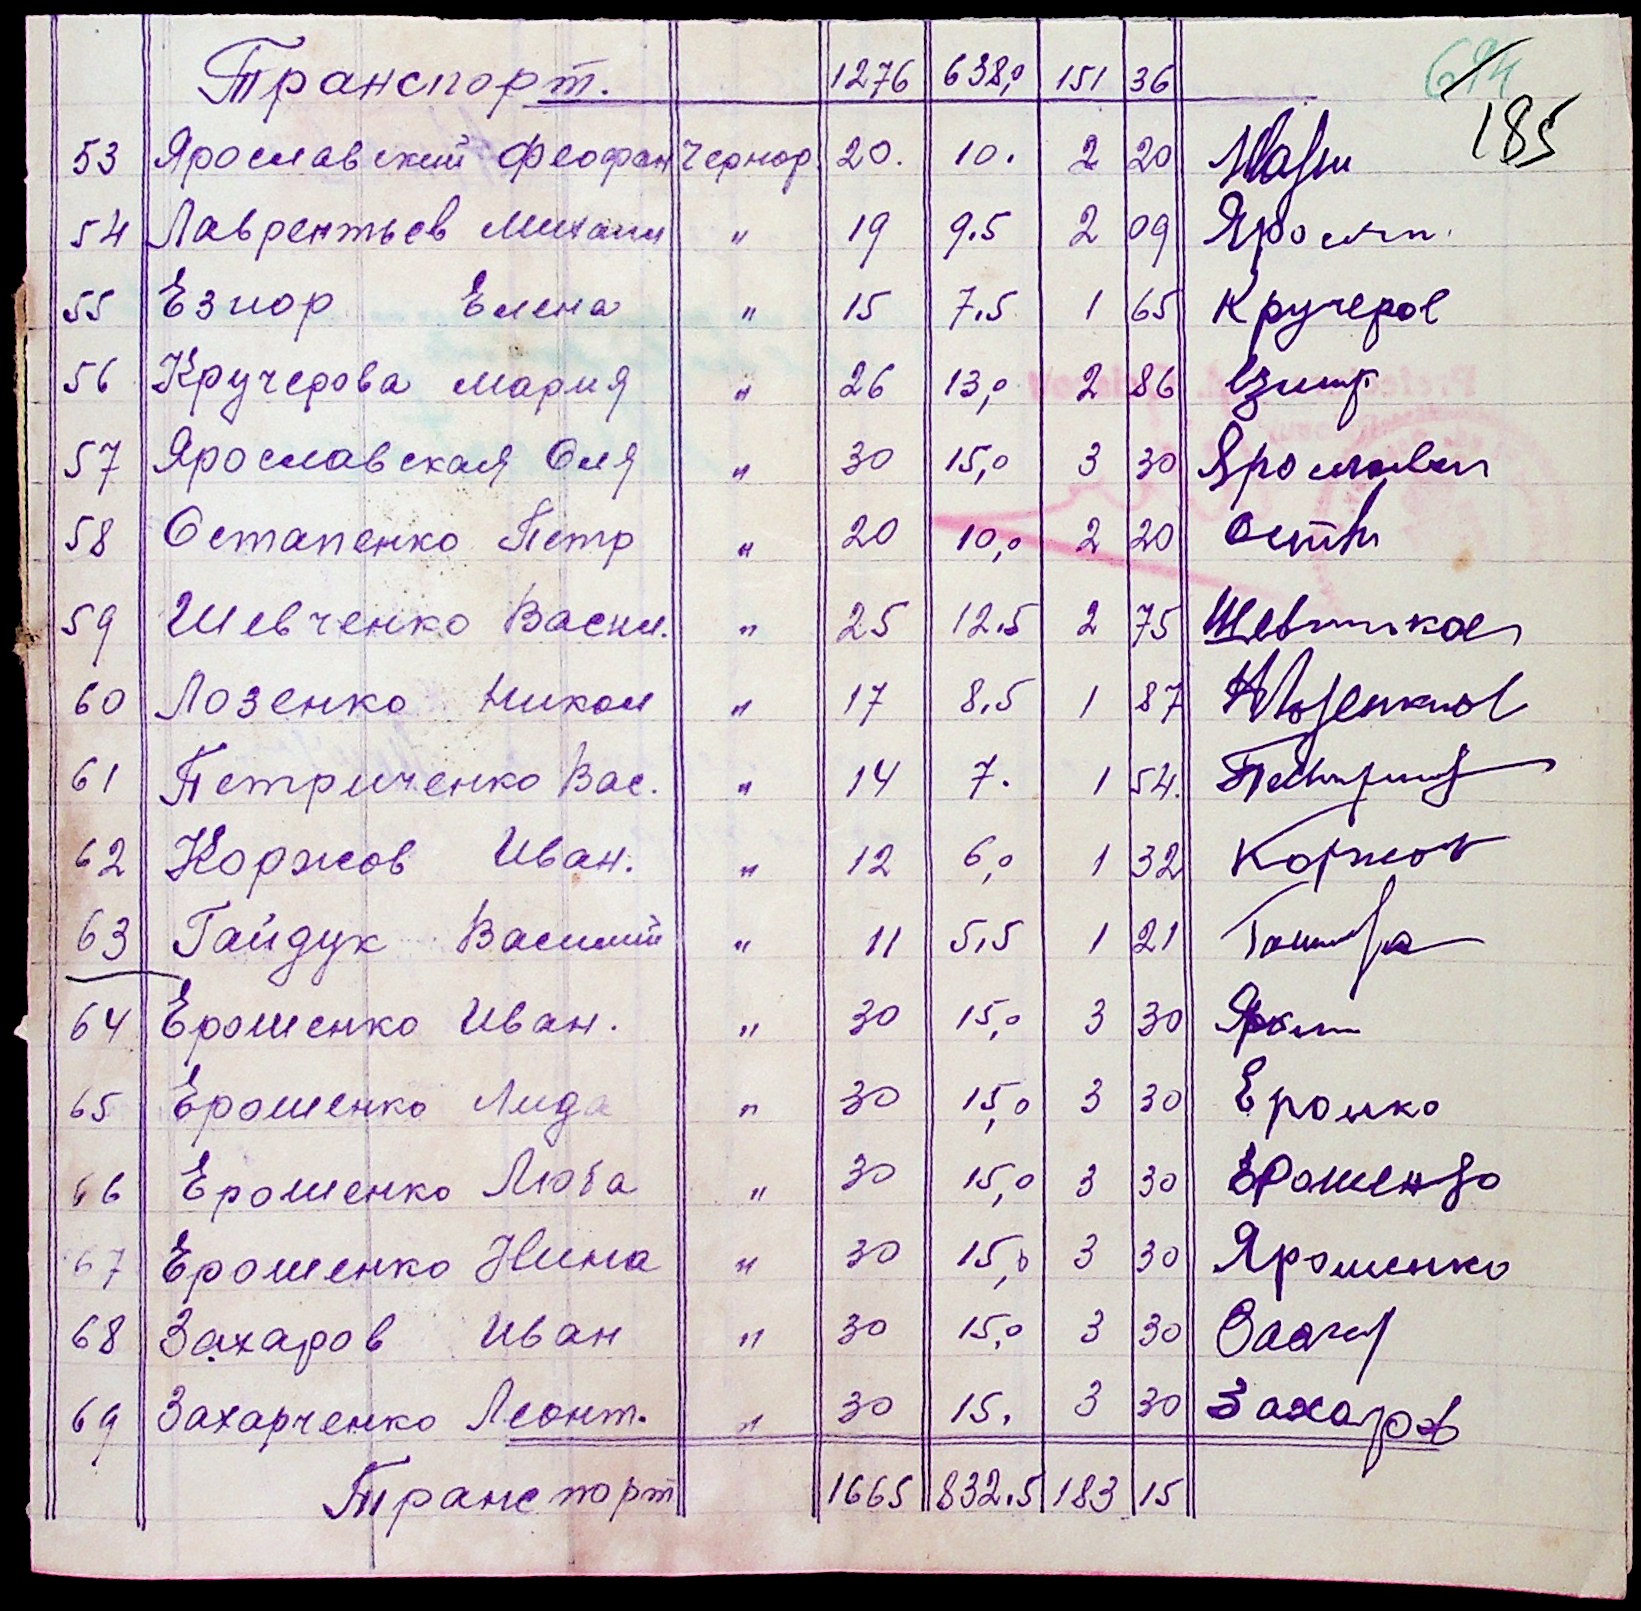 Транспорт. 1276 638,0 151 36
694
185
53 Ярославский Феофан Чернор. 20. 10. 2 20
54 Лаврентьев Михаил " 19 9.5 2 09
55 Езиор Елена " 15 7.5 1 65 Кручеров
56 Кручерова Мария " 26 13,0 2 86
57 Ярославская Оля " 30 15,0 3 30
58 Остапенко Петр " 20 10,0 2 20
59 Шевченко Васил. " 25 12.5 2 75
60 Лозенко Никол " 17 8.5 1 87
61 Петриченко Вас. " 14 7. 1 54.
62 Коржов Иван. " 12 6,0 1 32 Коржов
63 Гайдук Василий " 11 5,5 1 21
64 Ерошенко Иван. " 30 15,0 3 30
65 Ерошенко Лида " 30 15,0 3 30 Ерошко
66 Ерошенко Люба " 30 15,0 3 30 Ерошенко
67 Ерошенко Нина " 30 15,0 3 30 Ярошенко
68 Захаров Иван " 30 15,0 3 30
69 Захарченко Леонт. " 30 15. 3 30 Захаров
Транспорт 1665 832.5 183 15